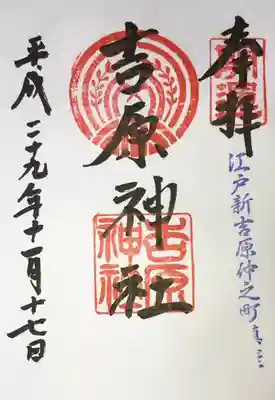 奉拝
江戸新吉原仲之町
吉原神社
吉原神社
平成二十九年十一月十七日